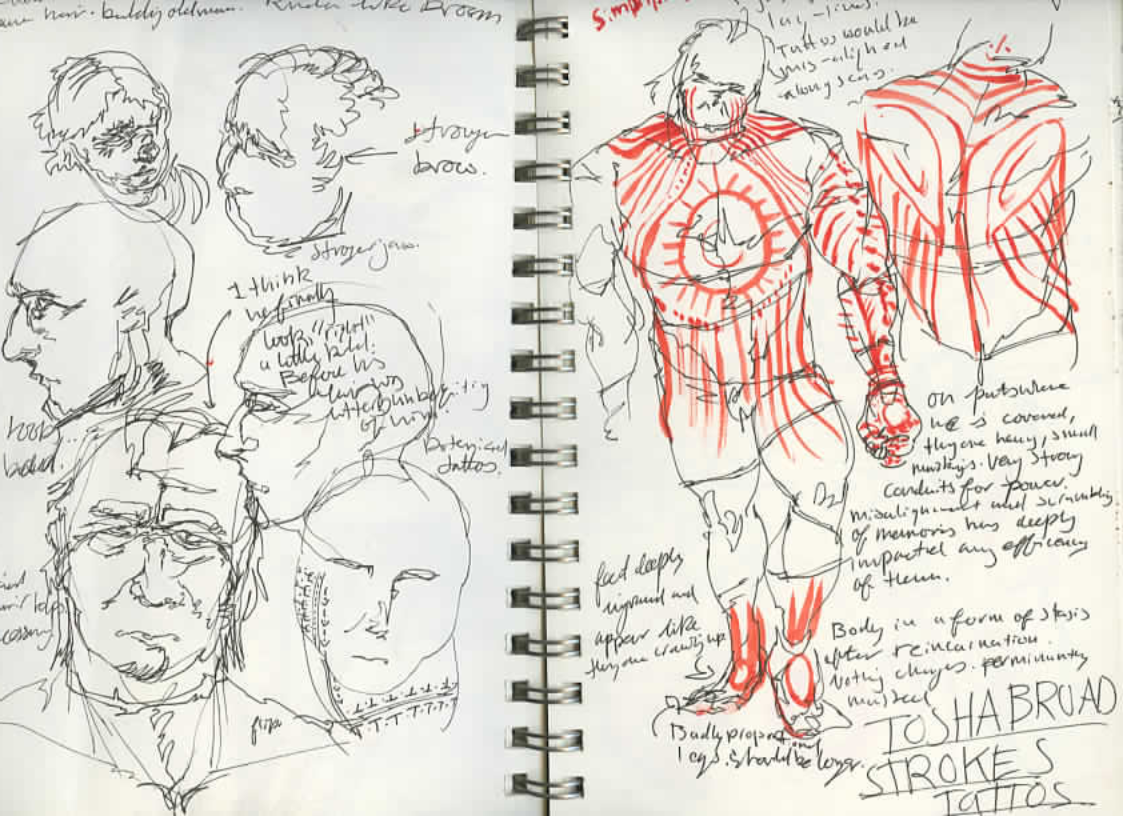 hair. balding old man. Kinda like Broom
stronger
brow.
stronger jaw.
I think
he finally
looks "right"
a little bald.
Before his
hair was
of him.
botanical
tattoos.
look
bald.
Simpl
leg-lines.
Tattoos would be
mis-aligned
along scars.
on parts where
he is covered,
they are heavy, small
markings. Very strong
conduits for power.
misalignment and scrambling
of memories has deeply
impacted any efficiency
of them.
feet deeply
injured and
appear like
they are crawling up
Body in a form of stasis
after reincarnation.
Nothing changes. permanently
muscled
Badly proportioned
legs. should be longer.
TOSHA BROAD
STROKES
TATTOS